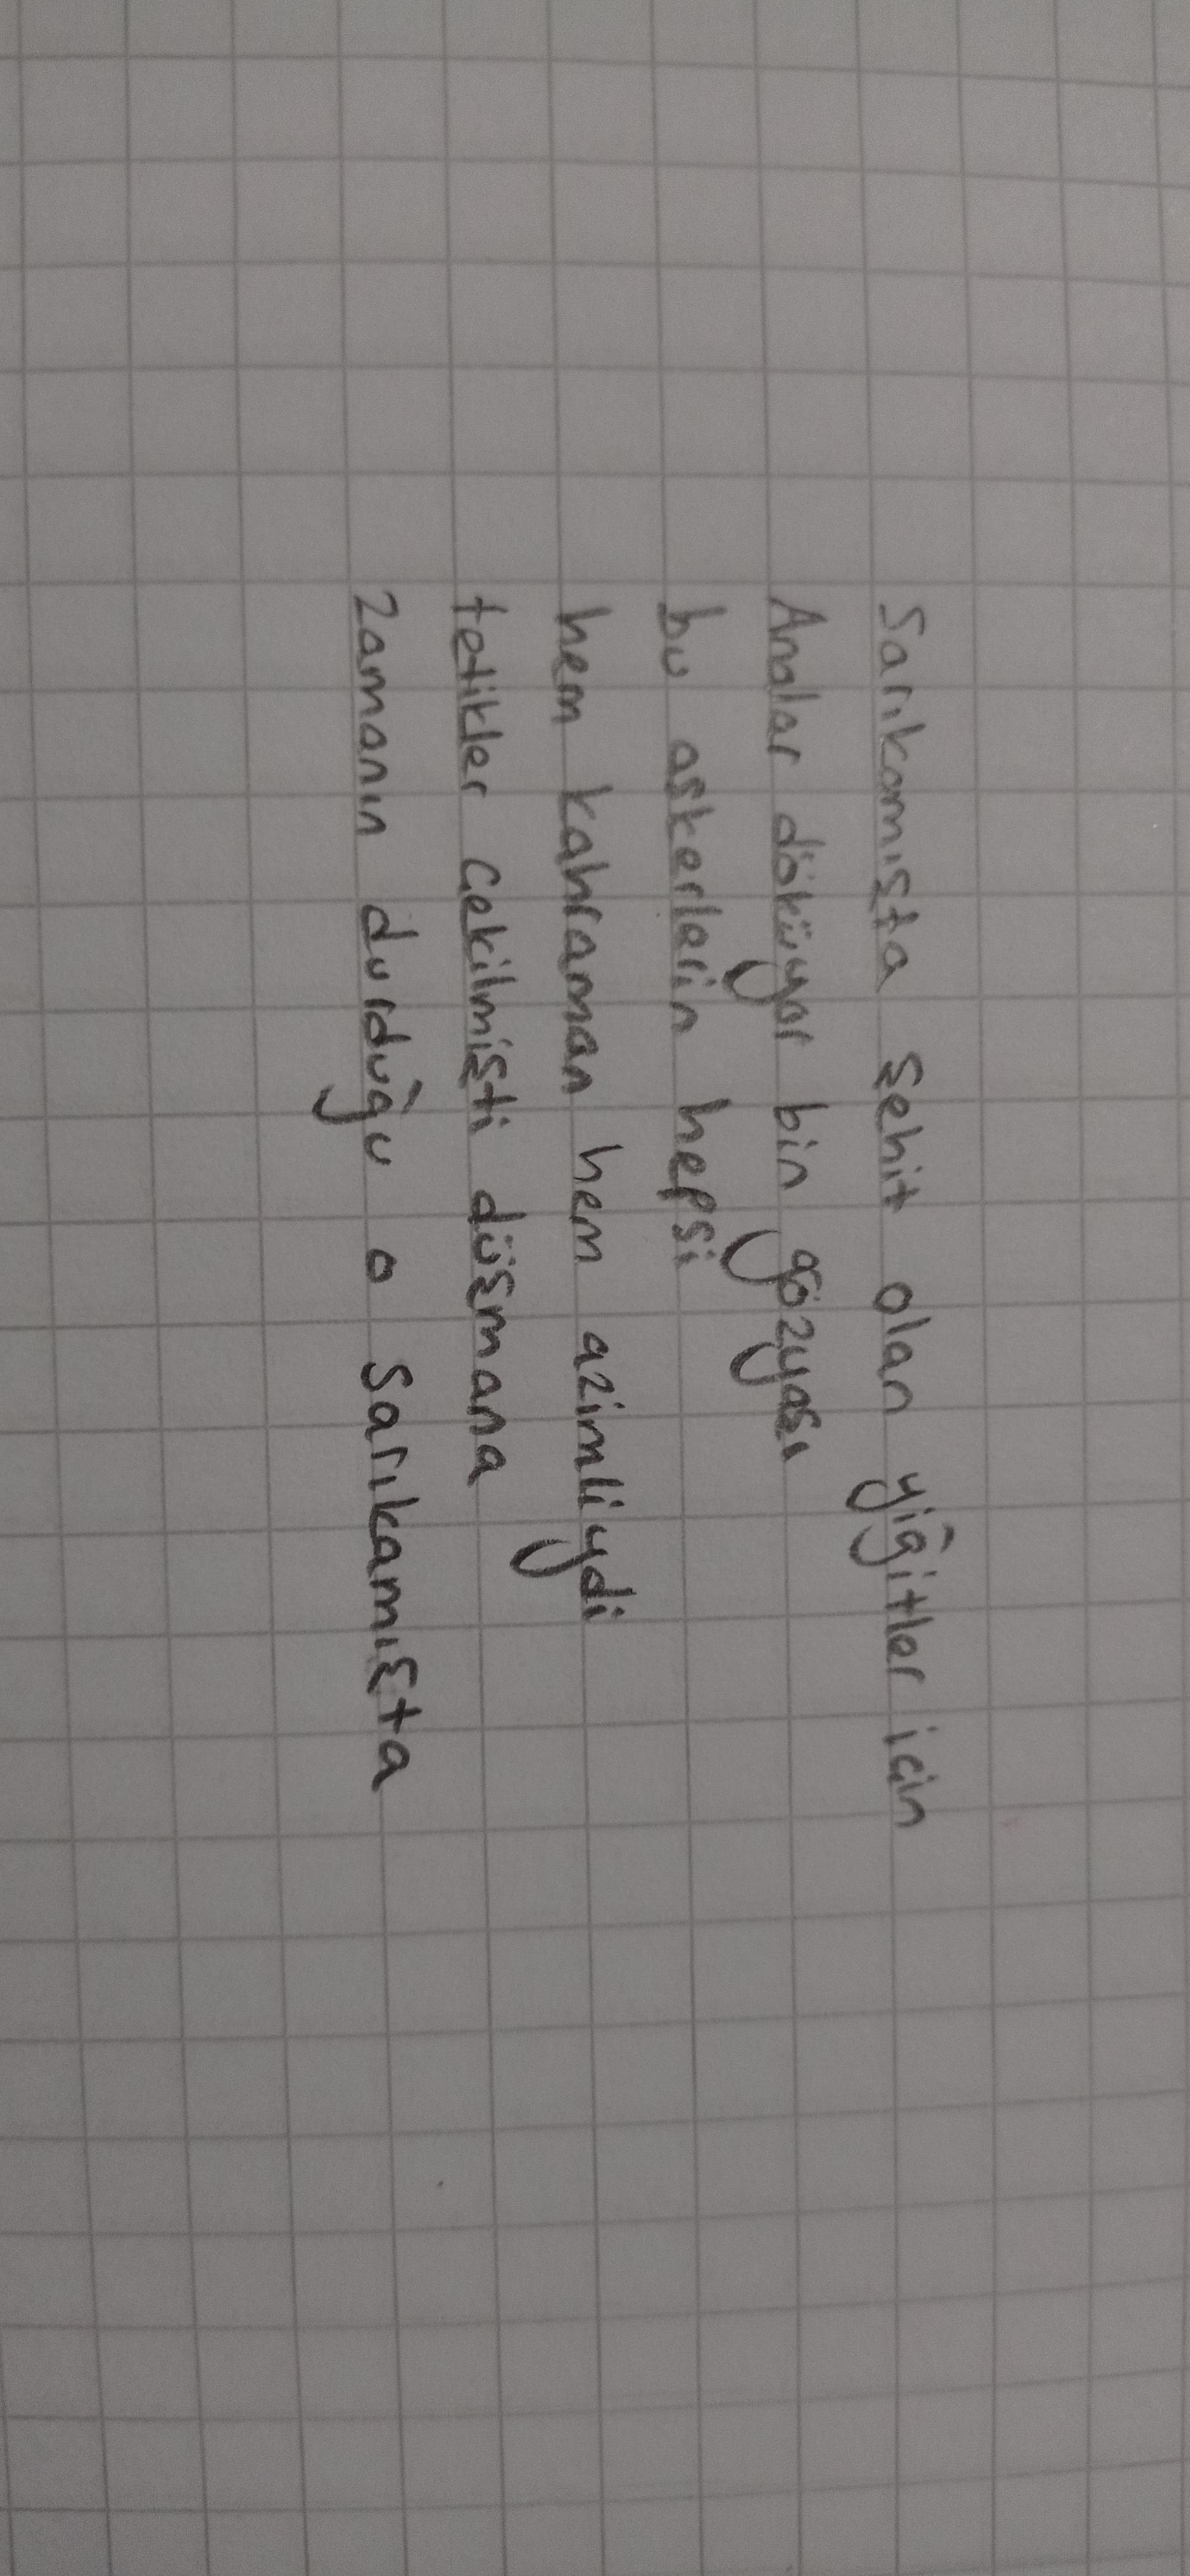 Sarıkamışta şehit olan yiğitler için
Analar döküyor bin gözyası
bu askerlerin hepsi
hem kahraman hem azimliydi
tetikler çekilmişti düşmana
Zamanın durduğu o Sarıkamışta